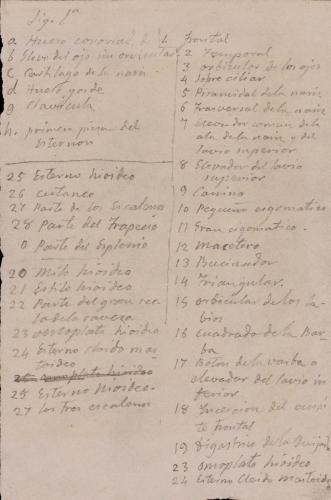 Fig. 1ª
a Hueso coronal, ó
b Globo del ojo sin orvicular
c Cartilago de la nariz
d Hueso yoide
g Clavicula
h. primera pieza del
Esternon
25 Esterno hioideo
26 cutaneo
27 Parte de los Escalenos
28 Parte del Trapecio
0 Parte del Esplenio
20 Milo hioideo
21 Estilo hioideo
22 Parte del gran rec
to de la caveza
23 omoplato hioideo
24 Esterno cleido mas
toideo
26 omoplato hioideo
25 Esterno hioideo.
27 los tres escalenos
1. frontal
2 Temporal
3 orbicular de los ojos
4 sobre ciliar
5 Piramidal de la nariz
6 Trasversal de la nariz
7 Elevador comun de la
ala de la nariz y del
lavio superior
8 Elevador del lavio
superior
9 Canino
10 Pequeño cigomatico
11 Gran cigomatico.
12 Masetero
13 Bucinador
14 Triangular.
15 orbicular de los la-
bios
16 cuadrado de la Bar
ba
17 Boton de la varba o
elevador del lavio in
ferior
18 Insercion del occipi
to frontal
19 Digastrico de la Quijada
23 omoplato hioideo
24 Esterno Cleido Mastoideo